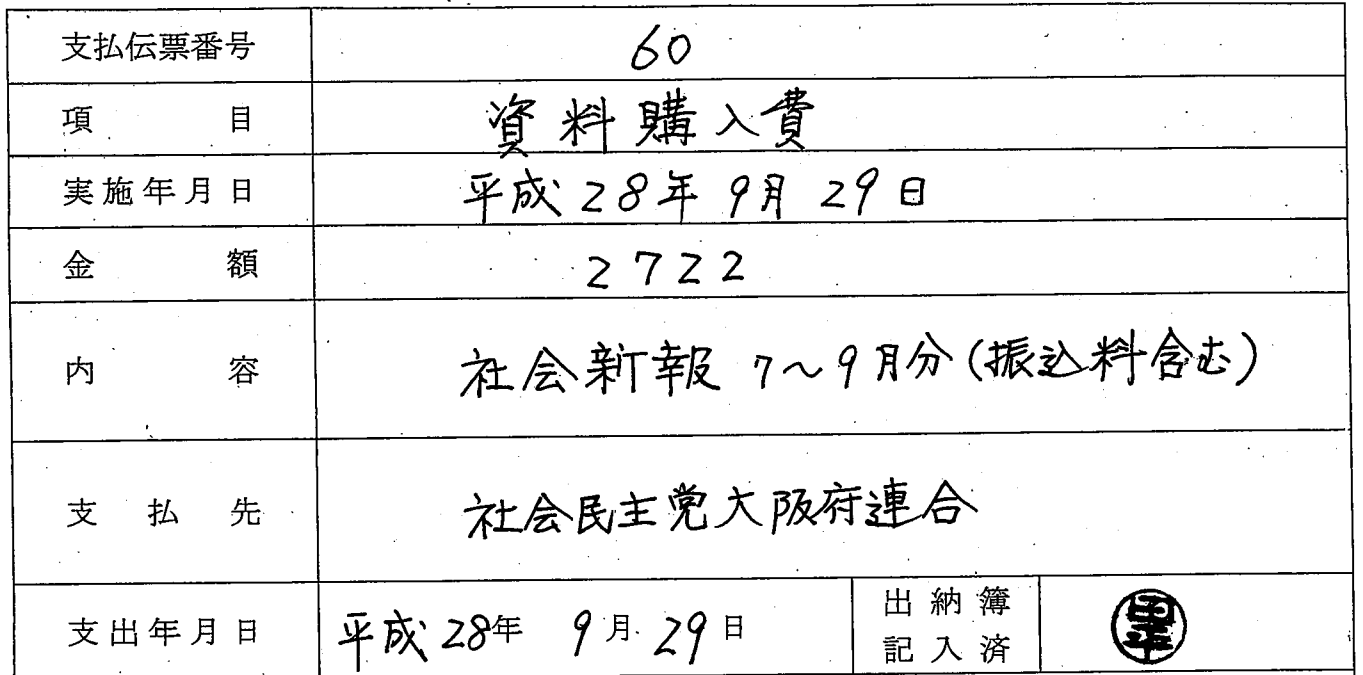 支払伝票番号 60
項目 資料購入費
実施年月日 平成28年9月29日
金額 2722
内容 社会新報 7～9月分(振込料含む)
支払先 社会民主党大阪府連合
支出年月日 平成28年 9月29日 出納簿
記入済